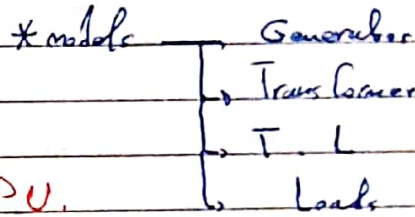 * models Generator
Transformer
T. L
PU. Loads